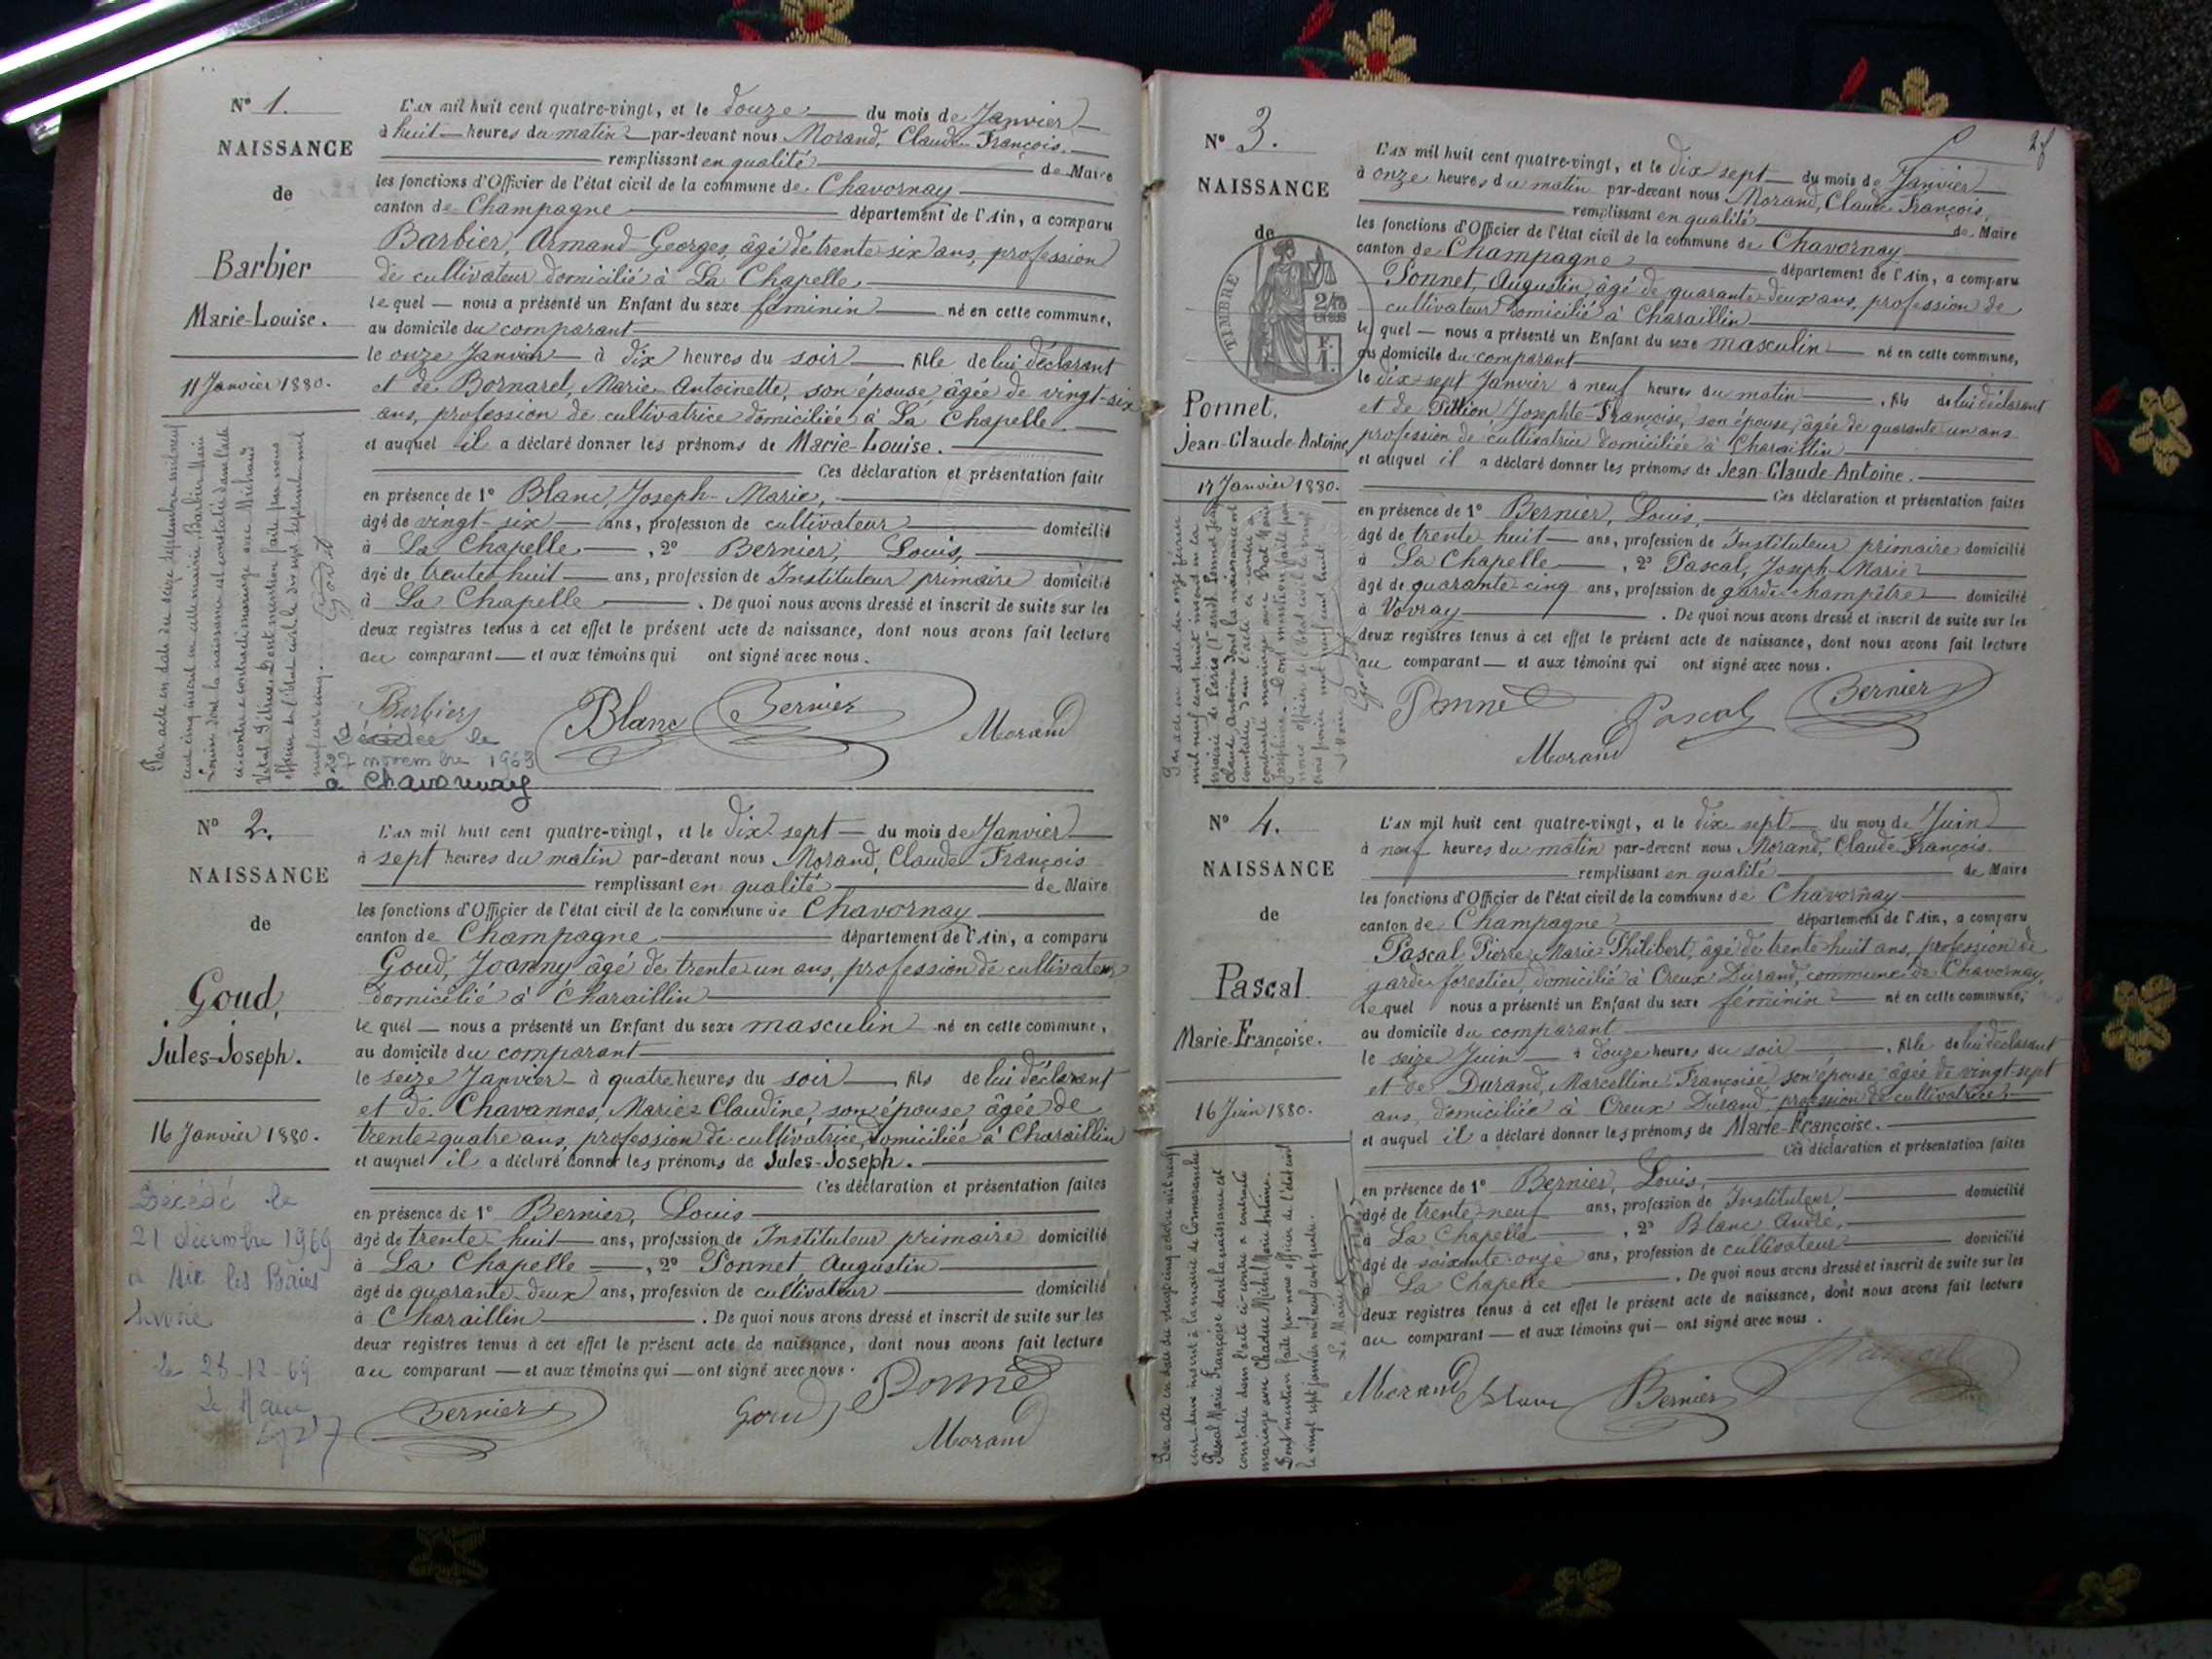 N° 1.
NAISSANCE
de
Barbier
Marie-Louise.
11 Janvier 1880.
L'AN mil huit cent quatre-vingt, et le douze du mois de Janvier
à huit heures du matin par-devant nous Morand, Claude François.
remplissant en qualité de Maire
les fonctions d'Officier de l'état civil de la commune de Chavornay
canton de Champagne département de l'Ain, a comparu
Barbier, Armand Georges, âgé de trente six ans, profession
de cultivateur domicilié à La Chapelle
le quel nous a présenté un Enfant du sexe féminin né en cette commune,
au domicile du comparant
le onze Janvier à dix heures du soir fille de lui déclarant
et de Bornarel, Marie Antoinette, son épouse âgée de vingt-six
ans, profession de cultivatrice domiciliée à La Chapelle.
et auquel il a déclaré donner les prénoms de Marie-Louise.
Ces déclaration et présentation faite
en présence de 1° Blanc, Joseph-Marie,
âgé de vingt-six ans, profession de cultivateur domicilié
à La Chapelle, 2° Bernier, Louis,
âgé de trente huit ans, profession de Instituteur primaire domicilié
à La Chapelle. De quoi nous avons dressé et inscrit de suite sur les
deux registres tenus à cet effet le présent acte de naissance, dont nous avons fait lecture
au comparant et aux témoins qui ont signé avec nous.
Par acte en date du seize septembre mil neuf
cent cinq inscrit en cette mairie, Barbier Marie
Louise dont la naissance est constatée dans l'acte
ci-contre a contracté mariage avec Michaud
Dont mention faite par nous
officier de l'état civil le dix sept septembre mil
neuf cent cinq.
Barbier Blanc Bernier Morand
Décédée le
27 novembre 1963
à Chavornay
N° 2.
NAISSANCE
de
Goud,
Jules-Joseph.
16 Janvier 1880.
Décédé le
21 décembre 1969
à Aix les Bains
Savoie
le 28-12-69
Le Maire
L'AN mil huit cent quatre-vingt, et le dix-sept du mois de Janvier
à sept heures du matin par-devant nous Morand, Claude François
remplissant en qualité de Maire
les fonctions d'Officier de l'état civil de la commune de Chavornay
canton de Champagne département de l'Ain, a comparu
Goud, Joanny âgé de trente un ans, profession de cultivateur
domicilié à Charaillin
le quel nous a présenté un Enfant du sexe masculin né en cette commune,
au domicile du comparant
le seize Janvier à quatre heures du soir fils de lui déclarant
et de Chavannes, Marie Claudine son épouse, âgée de
trente quatre ans, profession de cultivatrice domiciliée à Charaillin
et auquel il a déclaré donner les prénoms de Jules-Joseph.
Ces déclaration et présentation faites
en présence de 1° Bernier, Louis
âgé de trente huit ans, profession de Instituteur primaire domicilié
à La Chapelle, 2° Ponnet Augustin
âgé de quarante-deux ans, profession de cultivateur domicilié
à Charaillin. De quoi nous avons dressé et inscrit de suite sur les
deux registres tenus à cet effet le présent acte de naissance, dont nous avons fait lecture
au comparant et aux témoins qui ont signé avec nous.
Bernier Goud Ponnet
Morand
2f
N° 3.
NAISSANCE
de
TIMBRE
Ponnet,
Jean-Claude-Antoine
17 Janvier 1880.
L'AN mil huit cent quatre-vingt, et le dix sept du mois de Janvier
à onze heures du matin par-devant nous Morand, Claude François,
remplissant en qualité de Maire
les fonctions d'Officier de l'état civil de la commune de Chavornay
canton de Champagne département de l'Ain, a comparu
Ponnet, Augustin, âgé de quarante-deux ans, profession de
cultivateur domicilié à Charaillin
le quel nous a présenté un Enfant du sexe masculin né en cette commune,
au domicile du comparant
le dix-sept Janvier à neuf heures du matin, fils de lui déclarant
et de Pittion Josephte-Françoise, son épouse, âgée de quarante un ans
profession de cultivatrice domiciliée à Charaillin
et auquel il a déclaré donner les prénoms de Jean-Claude-Antoine.
Ces déclaration et présentation faites
en présence de 1° Bernier, Louis,
âgé de trente huit ans, profession de Instituteur primaire domicilié
à La Chapelle, 2° Pascal, Joseph-Marie
âgé de quarante-cinq ans, profession de garde-champêtre domicilié
à Vovray. De quoi nous avons dressé et inscrit de suite sur les
deux registres tenus à cet effet le présent acte de naissance, dont nous avons fait lecture
au comparant et aux témoins qui ont signé avec nous.
Ponnet Pascal Bernier
Morand
N° 4.
NAISSANCE
de
Pascal
Marie-Françoise.
16 Juin 1880.
L'AN mil huit cent quatre-vingt, et le dix sept du mois de Juin
à neuf heures du matin par-devant nous Morand, Claude François.
remplissant en qualité de Maire
les fonctions d'Officier de l'état civil de la commune de Chavornay
canton de Champagne département de l'Ain, a comparu
Pascal, Pierre-Marie-Philibert, âgé de trente huit ans, profession de
garde-forestier, domicilié à Creux Durand, commune de Chavornay
le quel nous a présenté un Enfant du sexe féminin né en cette commune,
au domicile du comparant
le seize Juin à douze heures du soir, fille de lui déclarant
et de Durand, Marcelline Françoise son épouse âgée de vingt-sept
ans, domiciliée à Creux Durand, profession de cultivatrice
et auquel il a déclaré donner les prénoms de Marie-Françoise.
Ces déclaration et présentation faites
en présence de 1° Bernier, Louis,
âgé de trente-neuf ans, profession de Instituteur domicilié
à La Chapelle, 2° Blanc André,
âgé de soixante-onze ans, profession de cultivateur domicilié
à La Chapelle. De quoi nous avons dressé et inscrit de suite sur les
deux registres tenus à cet effet le présent acte de naissance, dont nous avons fait lecture
au comparant et aux témoins qui ont signé avec nous.
Par acte en date du vingt cinq octobre mil neuf
cent deux inscrit à la mairie de Cormaranche
Pascal Marie Françoise dont la naissance est
constatée dans l'acte ci-contre a contracté
mariage avec Chadue Michel Marie Antoine.
Dont mention faite par nous officier de l'état civil
le vingt sept janvier mil neuf cent quatre.
Le Maire
Morand Blanc Bernier Pascal